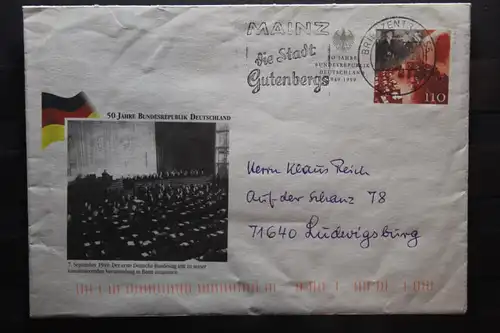 MAINZ
die Stadt
Gutenbergs
50 JAHRE
BUNDESREPUBLIK
DEUTSCHLAND
1949 1999
BRIEFZENTRUM
110
50 JAHRE BUNDESREPUBLIK DEUTSCHLAND
Herrn Klaus Reich
Auf der Schanz 78
71640 Ludwigsburg
7. September 1949: Der erste Deutsche Bundestag tritt zu seiner
konstituierenden Versammlung in Bonn zusammen.